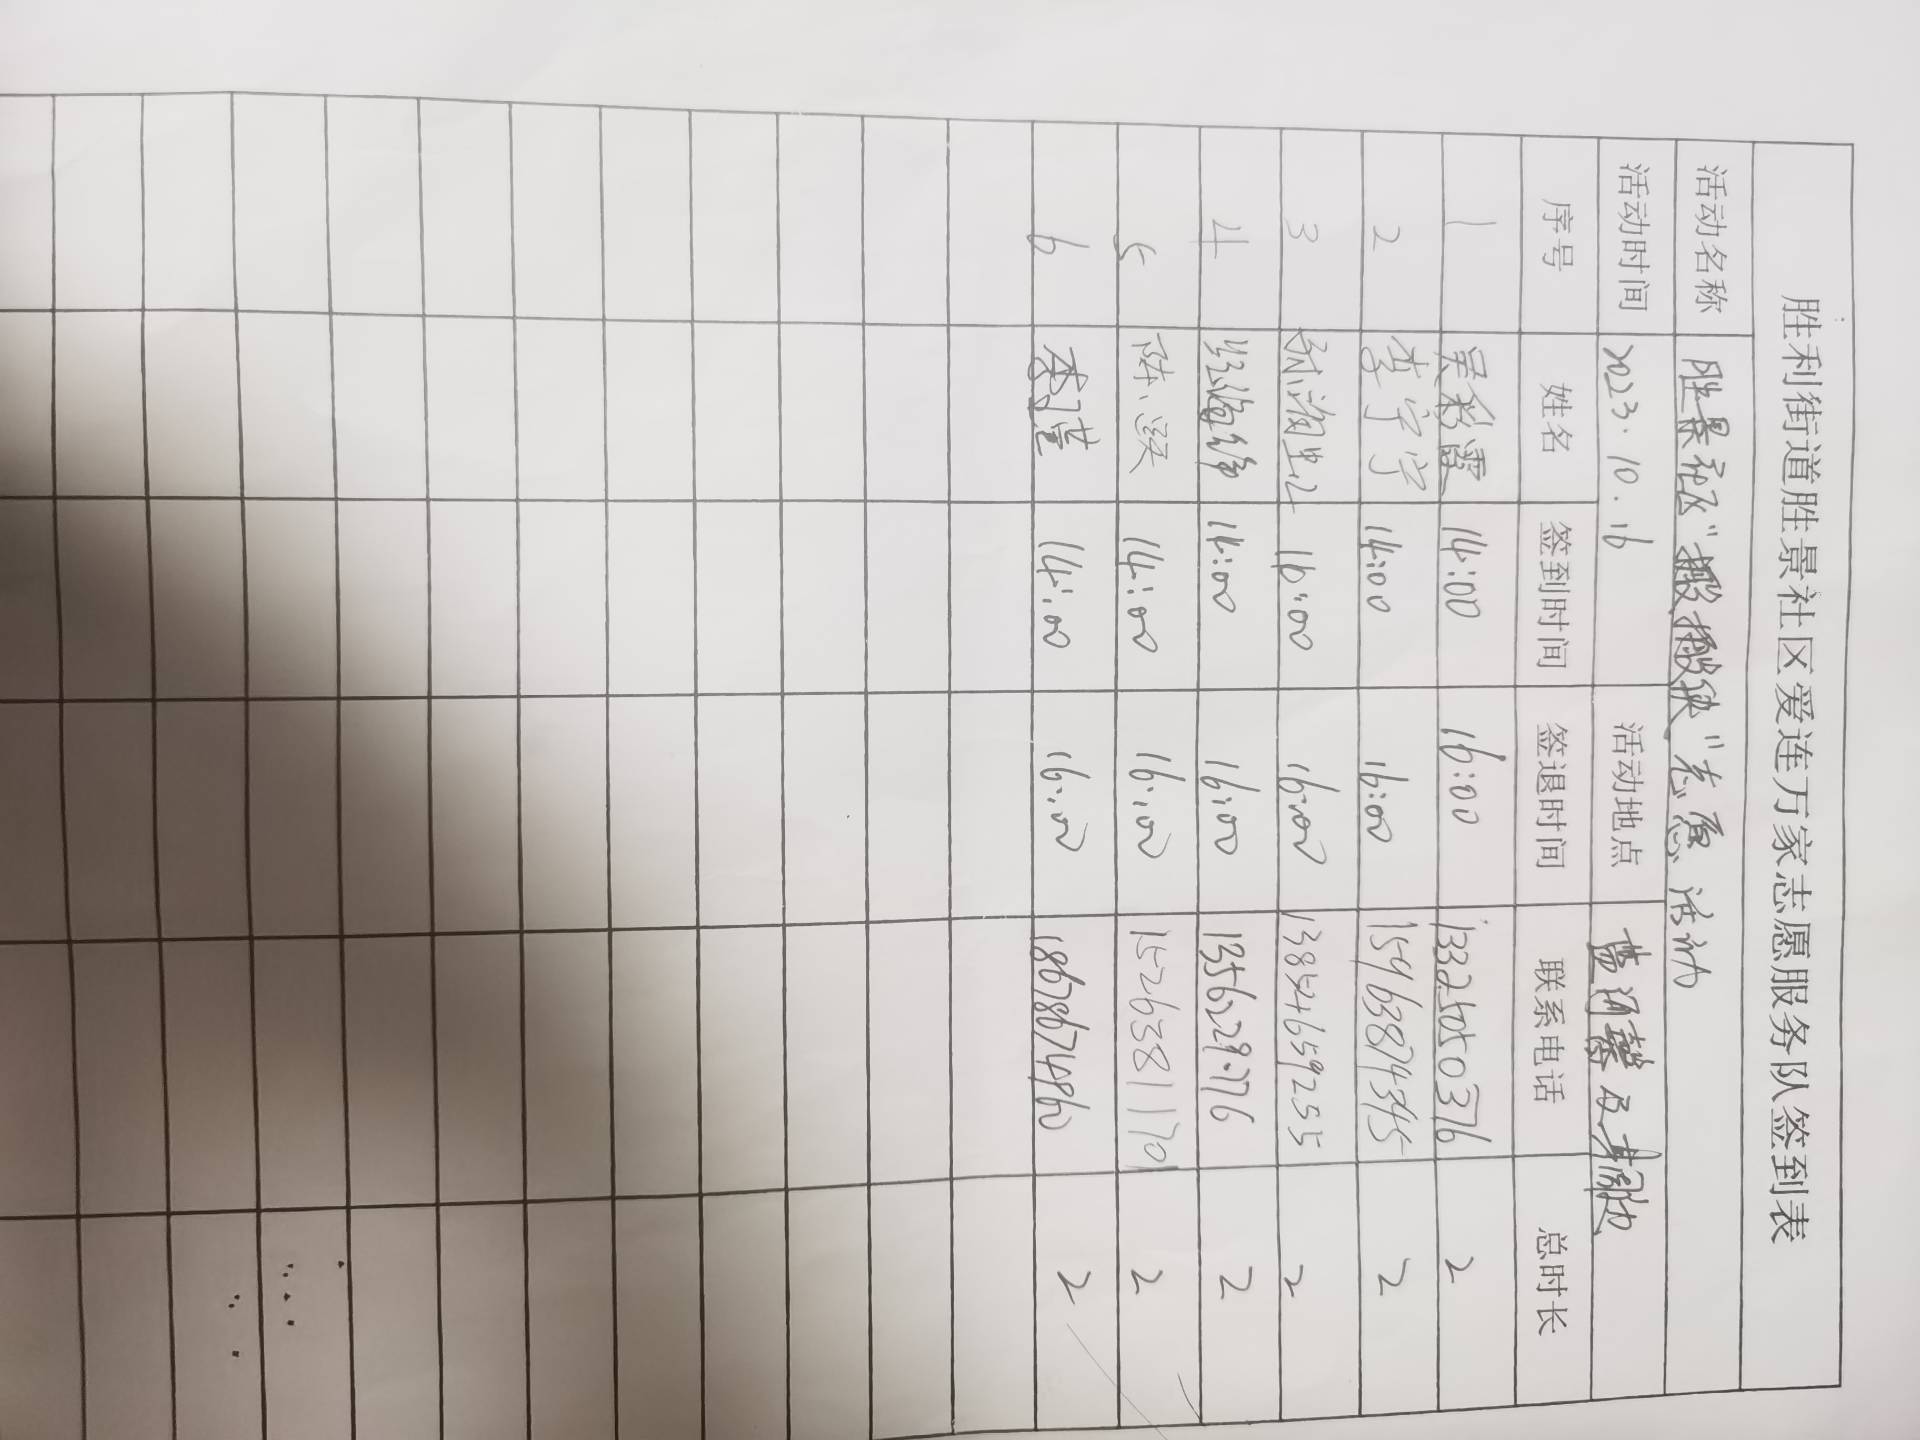 胜利街道胜景社区爱连万家志愿服务队签到表
活动名称 胜景社区" "志愿活动
活动时间 2023.10.16 活动地点 及
序号 姓名 签到时间 签退时间 联系电话 总时长
1 吴彩霞 14:00 16:00 13325050376 2
2 李宁宁 14:00 16:00 15963874345 2
3 16:00 16:00 13854659255 2
4 14:00 16:00 1356229776 2
5 陈 14:00 16:00 15263811701 2
6 李瑾 14:00 16:00 18678674860 2